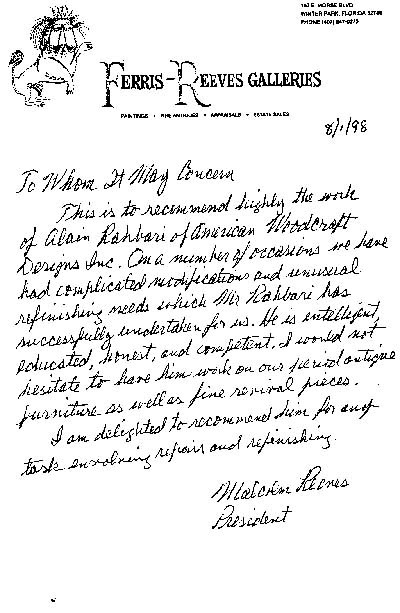 E. MORSE BLVD
WINTER PARK, FLORIDA
PHONE (407)
FERRIS-REEVES GALLERIES
PAINTINGS • FINE ANTIQUES • APPRAISALS • ESTATE SALES
8/1/98
To Whom It May Concern
This is to recommend highly the work
of Alain Rahbari of American Woodcraft
Designs Inc. On a number of occasions we have
had complicated modifications and unusual
refinishing needs which Mr Rahbari has
successfully undertaken for us. He is entelligent,
educated, honest, and competent. I would not
hesitate to have him work on our period antique
furniture as well as fine revival pieces.
I am delighted to recommend him for any
task envolving repair and refinishing.
Malcolm Reeves
President